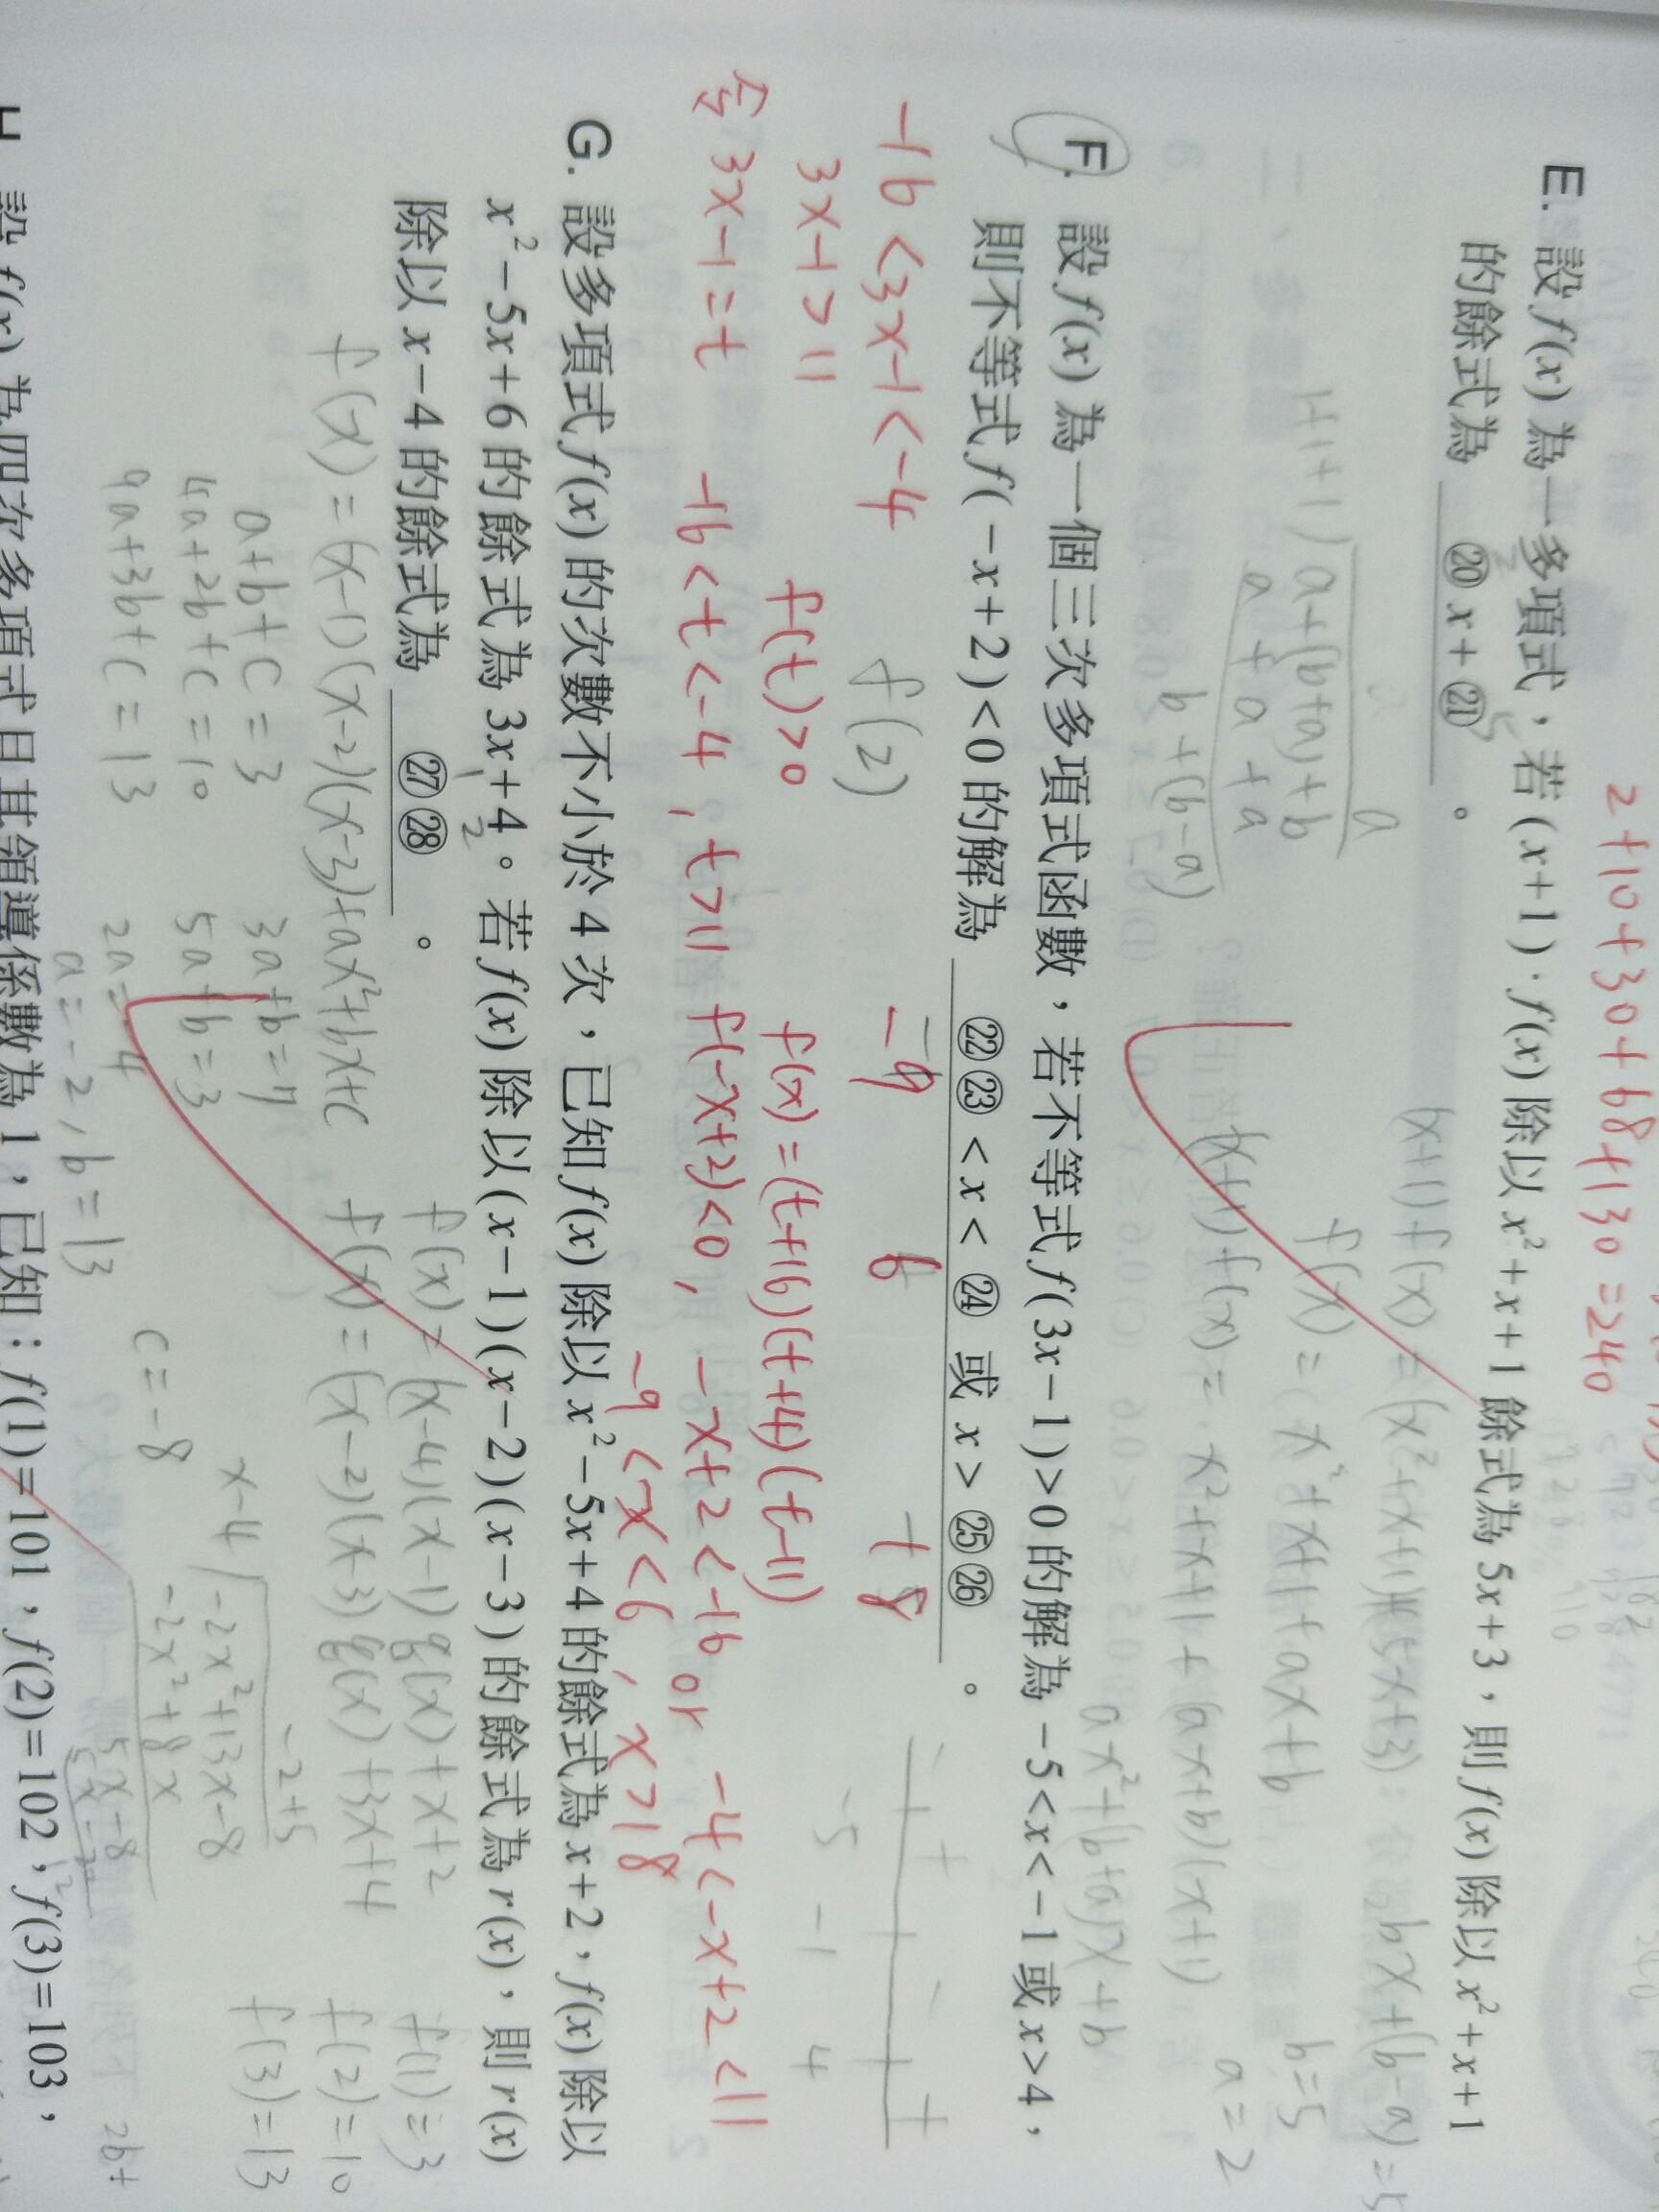 2+10+30+68+130=240
E. 設 f(x) 為一多項式，若 (x+1)·f(x) 除以 x²+x+1 餘式為 5x+3，則 f(x) 除以 x²+x+1
的餘式為 ⑳ x+ ㉑ 。
2 5
(x+1)f(x) = (x²+x+1)
f(x) = (x²+x+1
+ax+b
(x+1)f(x) = x²+x+1+(ax+b)(x+1)
ax²+(b+a)x+b
1+1+1
a+(b+a)+b
a+a+a
b+(b-a)
a
b=5
a=2
F. 設 f(x) 為一個三次多項式函數，若不等式 f(3x−1)>0 的解為 −5<x<−1 或 x>4，
則不等式 f(−x+2)<0 的解為 ㉒㉓ <x< ㉔ 或 x> ㉕㉖ 。
-9 6 +8
-16<3x-1<-4
3x-1>11
f(2)
-5 -1 4
- + - +
令3x-1=t
f(t)>0
-16<t<-4, t>11
f(x)=(t+16)(t+4)(t-11)
f(-x+2)<0, -x+2<-16 or -4<-x+2<11
-9<x<6, x>18
G. 設多項式 f(x) 的次數不小於 4 次，已知 f(x) 除以 x²−5x+4 的餘式為 x+2，f(x) 除以
x²−5x+6 的餘式為 3x+4。若 f(x) 除以 (x−1)(x−2)(x−3) 的餘式為 r(x)，則 r(x)
除以 x−4 的餘式為 ㉗㉘ 。
1 2
f(x)=(x-1)(x-2)(x-3)+ax²+bx+c
f(x)=(x-4)(x-1)q(x)+x+2
f(x)=(x-2)(x-3)q(x)+3x+4
f(1)=3
f(2)=10
f(3)=13
a+b+c=3
4a+2b+c=10
9a+3b+c=13
3a+b=7
5a+b=3
2a=-4
a=-2, b=13
c=-8
-2+5
x-4
-2x²+13x-8
-2x²+8x
5x-8
設 f(x) 為四次多項式且其領導係數為 1，已知：f(1)=101，f(2)=102，f(3)=103，